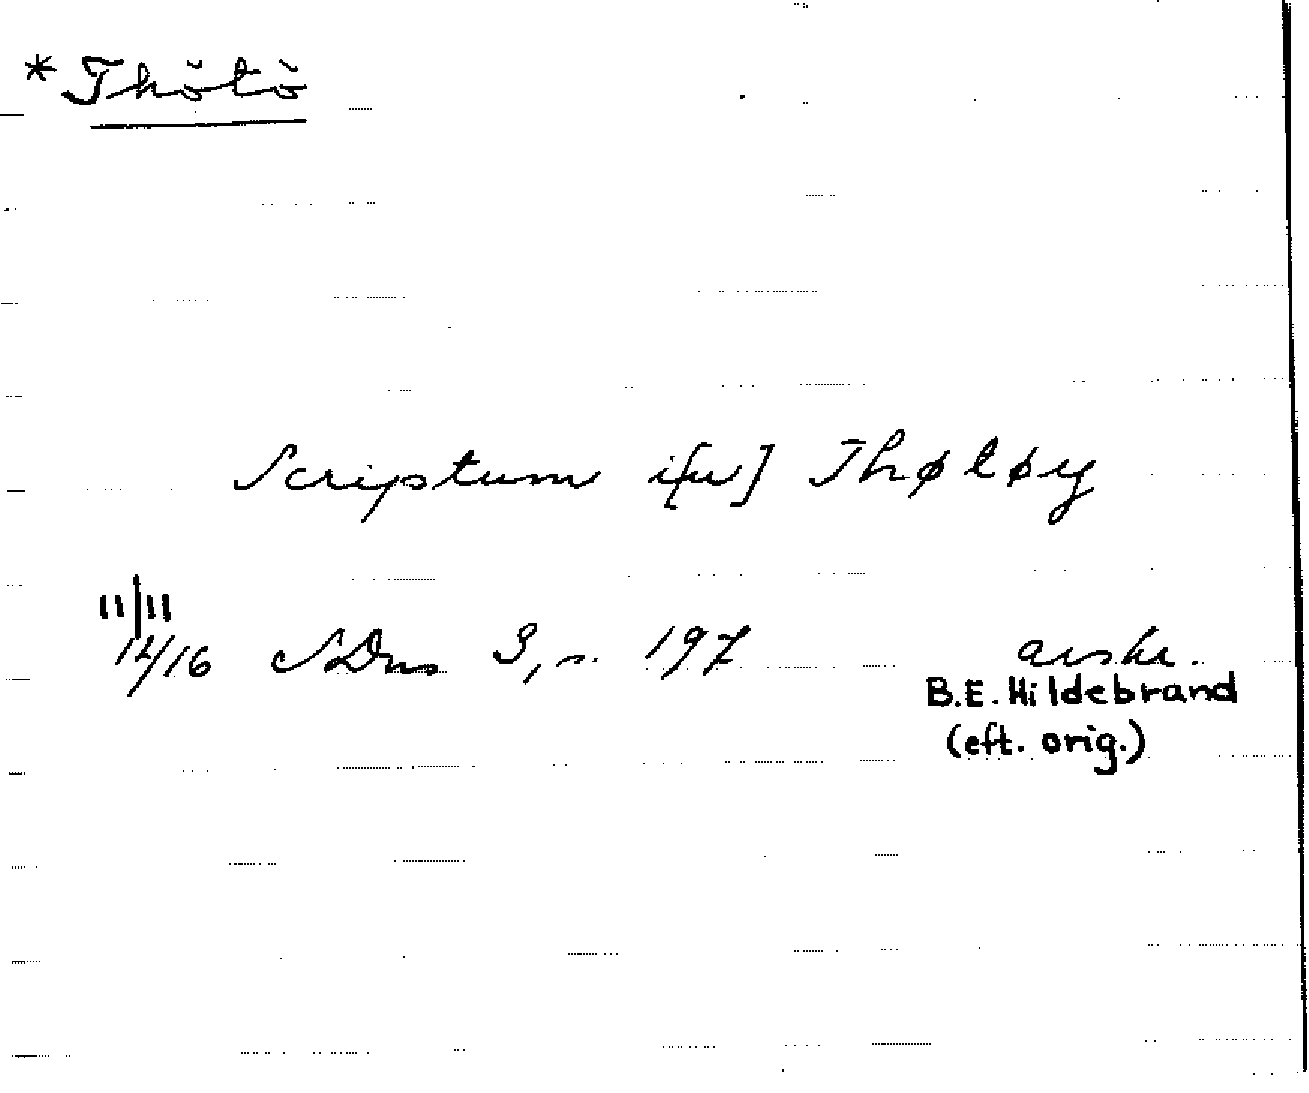 * Thötö
Scriptum i[n] Thøtøy
11/11
14/16 SDns 3, s. 197 avskr.
B.E. Hildebrand
(eft. orig.)